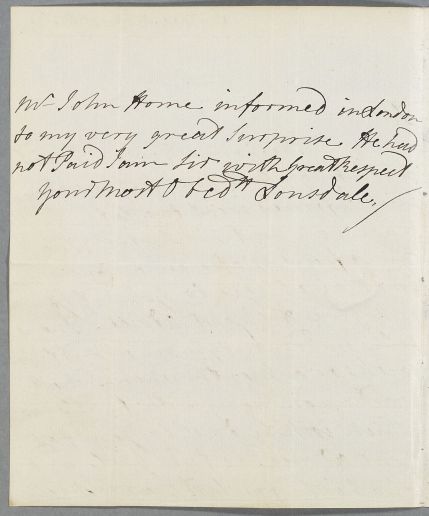 Mr John Home informed in London
to my very great Surprise He had
not Paid I am Sir with Great Respect
your Most Obedt Lonsdale.